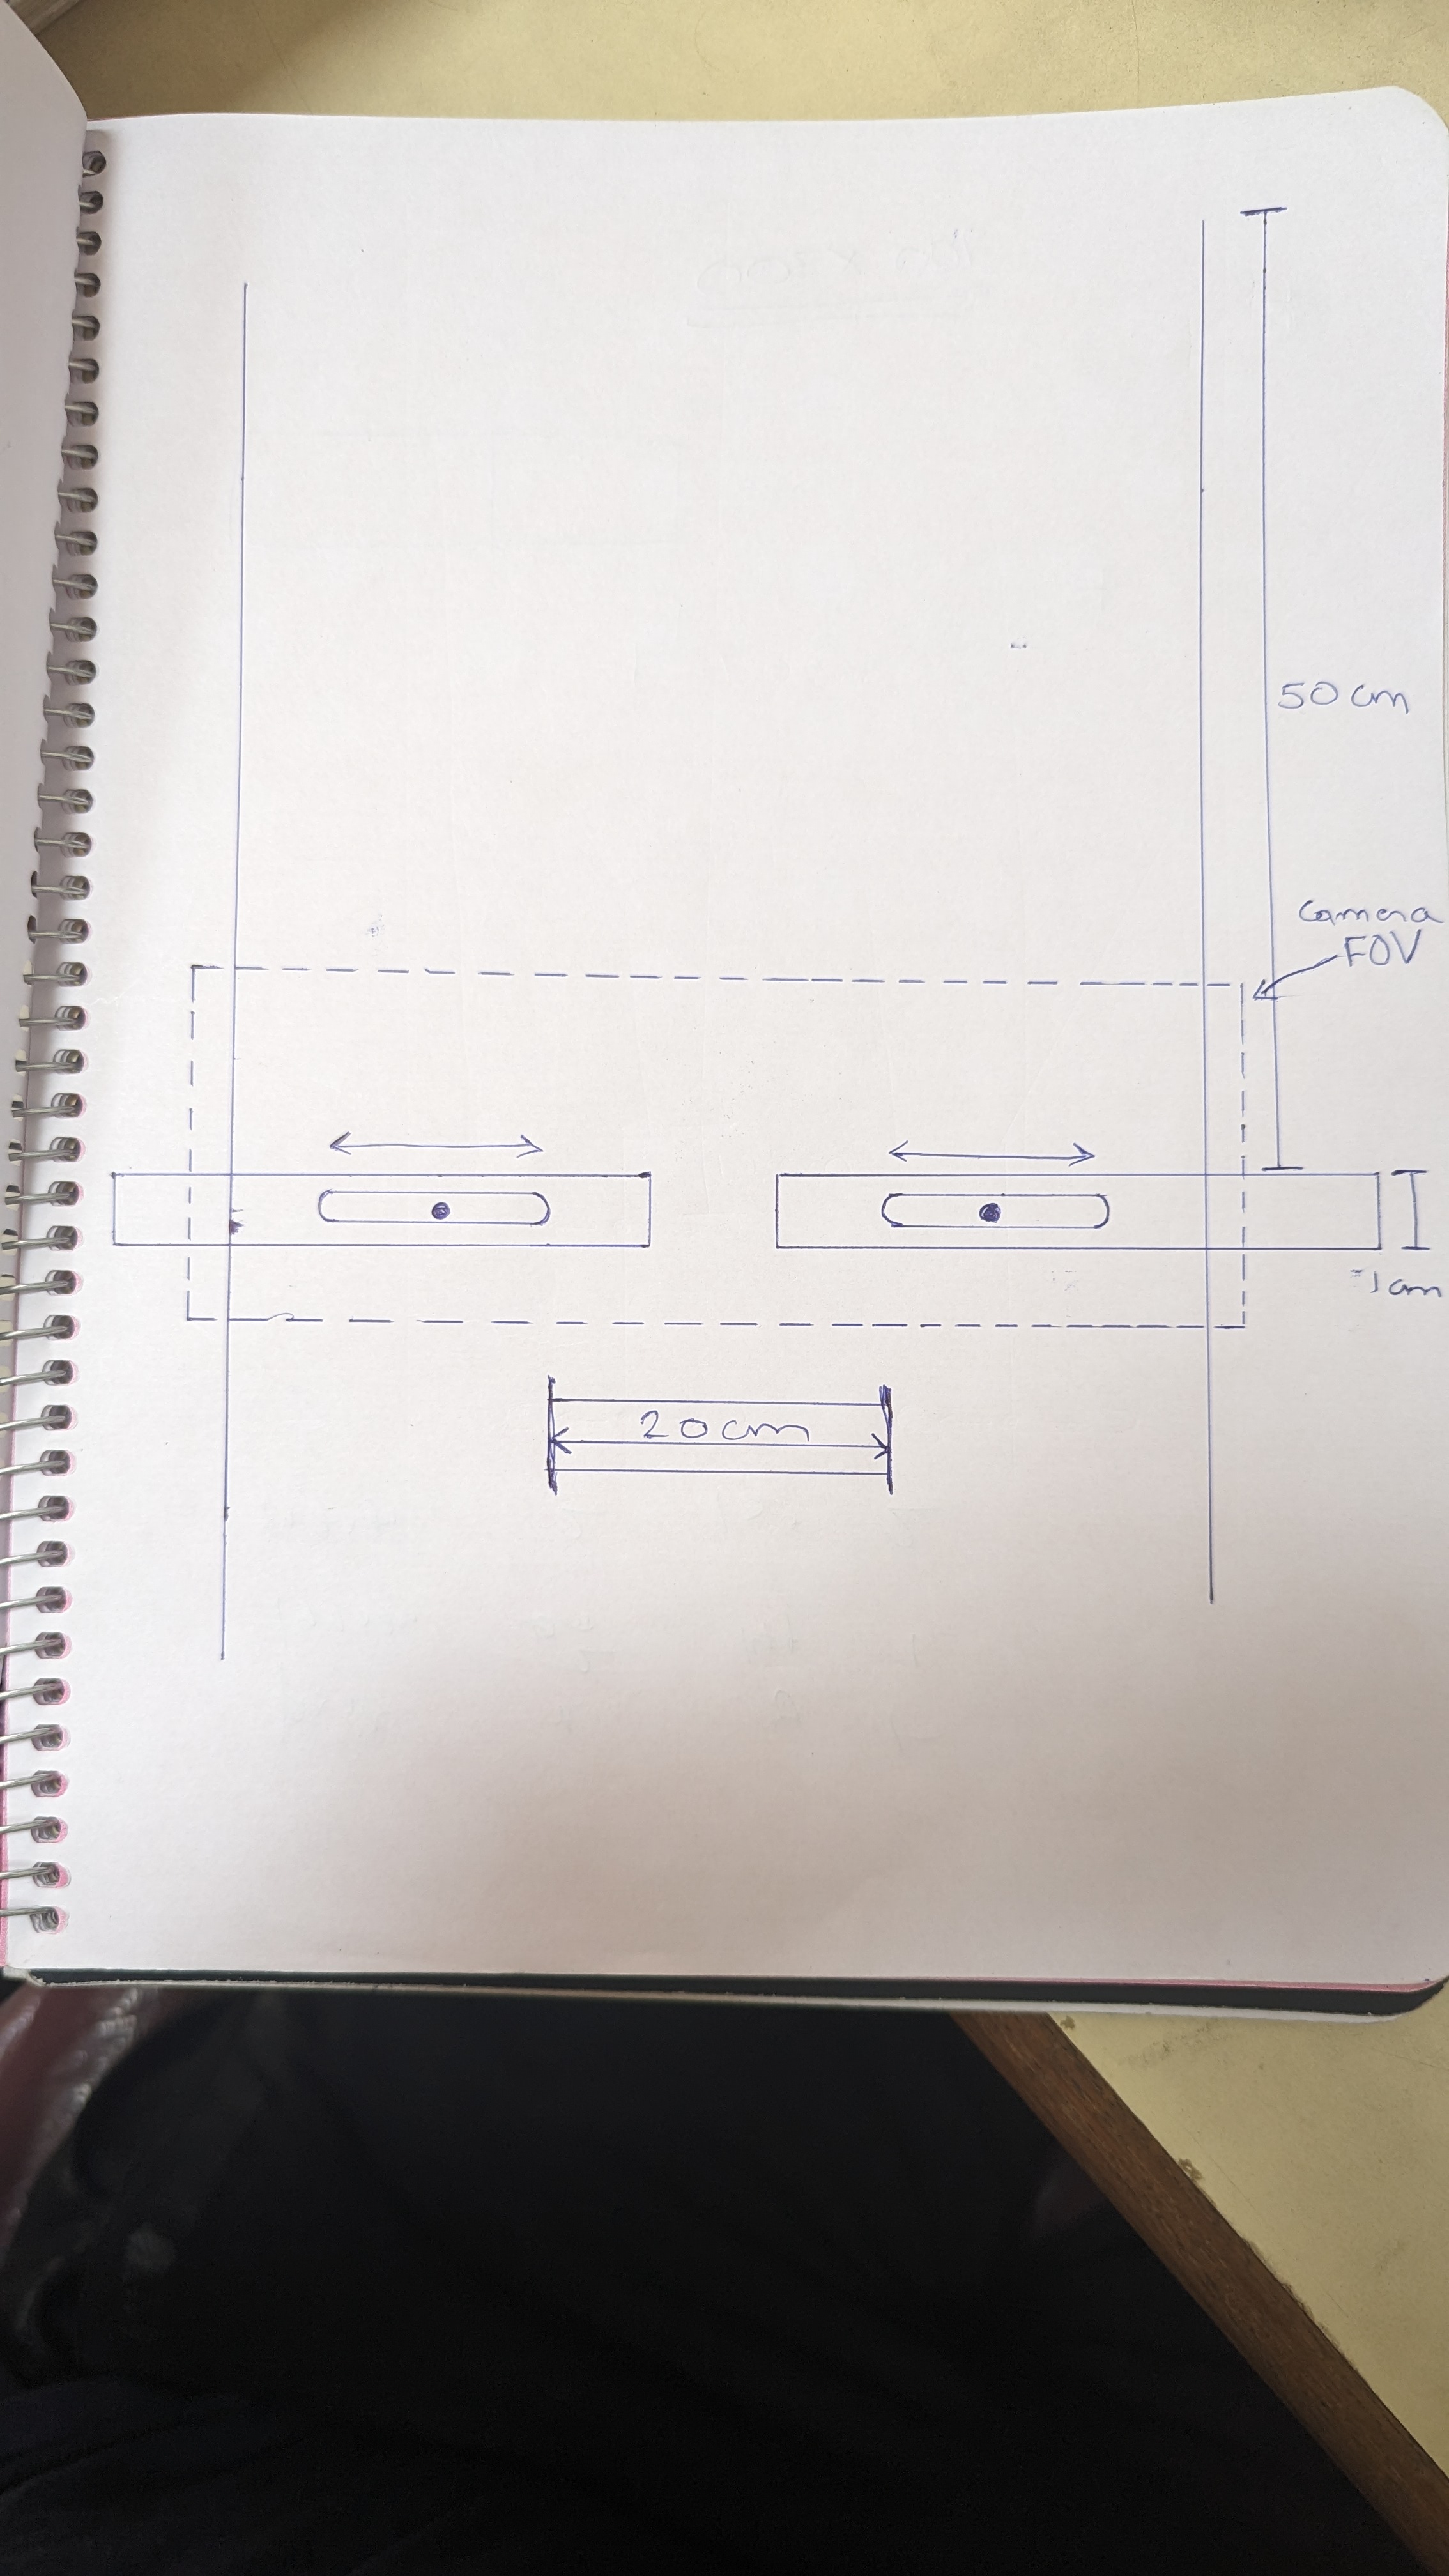 50 cm
Camera
FOV
1 cm
20 cm